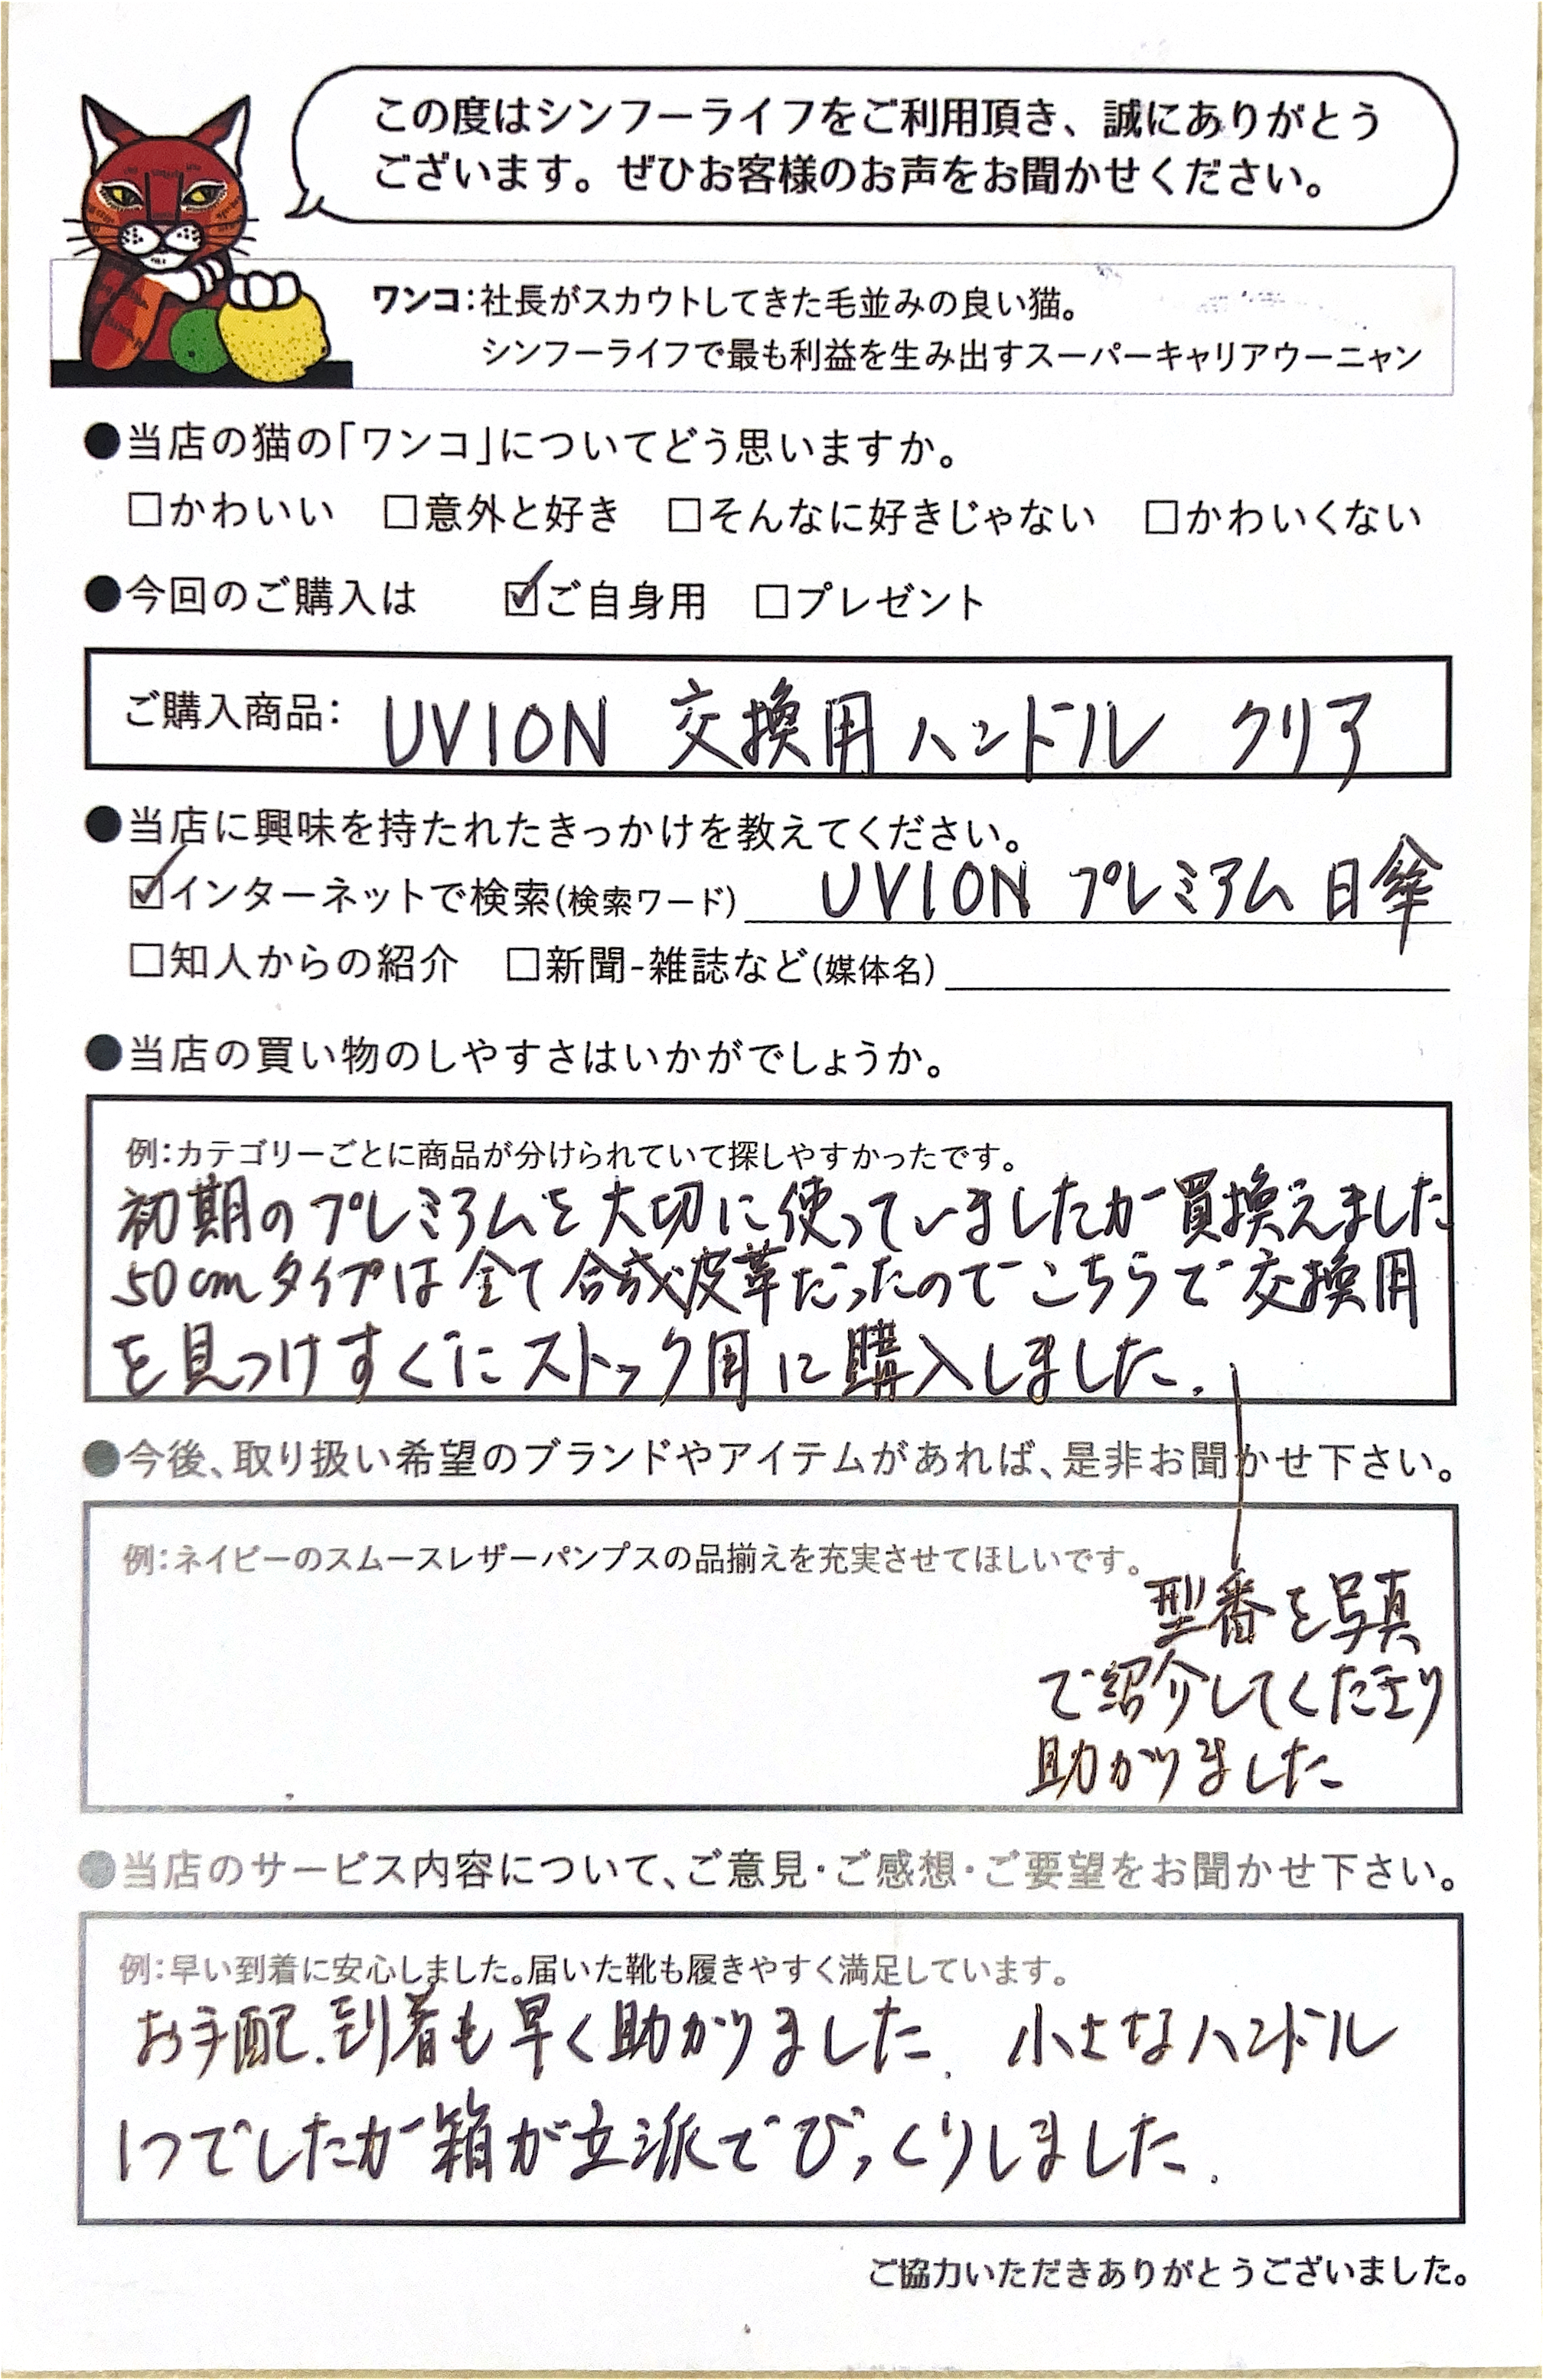 この度はシンフーライフをご利用頂き、誠にありがとう
ございます。ぜひお客様のお声をお聞かせください。
ワンコ：社長がスカウトしてきた毛並みの良い猫。
シンフーライフで最も利益を生み出すスーパーキャリアウーニャン
●当店の猫の「ワンコ」についてどう思いますか。
□かわいい □意外と好き □そんなに好きじゃない □かわいくない
●今回のご購入は ☑ご自身用 □プレゼント
ご購入商品： UVION 交換用ハンドル クリア
●当店に興味を持たれたきっかけを教えてください。
☑インターネットで検索(検索ワード) UVION プレミアム 日傘
□知人からの紹介 □新聞-雑誌など(媒体名)
●当店の買い物のしやすさはいかがでしょうか。
例：カテゴリーごとに商品が分けられていて探しやすかったです。
初期のプレミアムを大切に使っていましたが買換えました
50cmタイプは全て合成皮革だったのでこちらで交換用
を見つけすぐにストック用に購入しました.
●今後、取り扱い希望のブランドやアイテムがあれば、是非お聞かせ下さい。
例：ネイビーのスムースレザーパンプスの品揃えを充実させてほしいです。
型番を写真
で紹介してくださり
助かりました
●当店のサービス内容について、ご意見・ご感想・ご要望をお聞かせ下さい。
例：早い到着に安心しました。届いた靴も履きやすく満足しています。
お手配.到着も早く助かりました. 小さなハンドル
1つでしたが箱が立派でびっくりしました.
ご協力いただきありがとうございました。